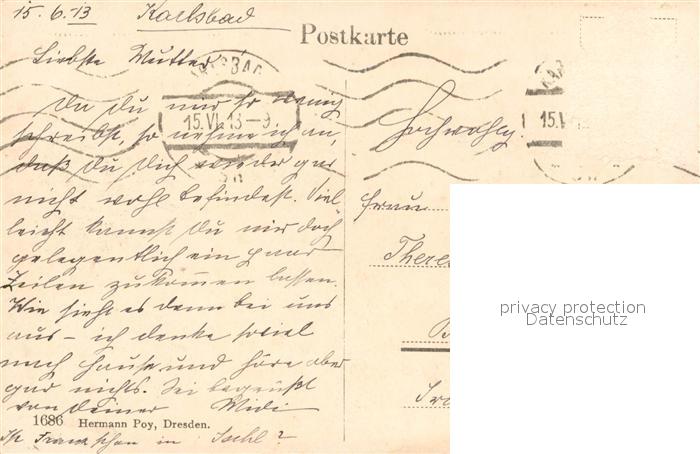 15.6.13 Karlsbad
Postkarte
Liebste Mutter!
KARLSBAD
15.VI.13-9
15.V
Da Du mir so wenig
schreibst, so nehme ich an,
daß Du Dich wieder gar
nicht wohl befindest. Viel
leicht kannst Du mir doch
gelegentlich ein paar
Zeilen zukommen lassen.
Wie sieht es denn bei uns
aus – ich denke so viel
nach Hause und höre aber
gar nichts. Sei begrüßt
von Deiner Midi
Ist Franzschon in Ischl?
Hochwohlg.
Frau
There
1686 Hermann Poy, Dresden.
privacy protection
Datenschutz